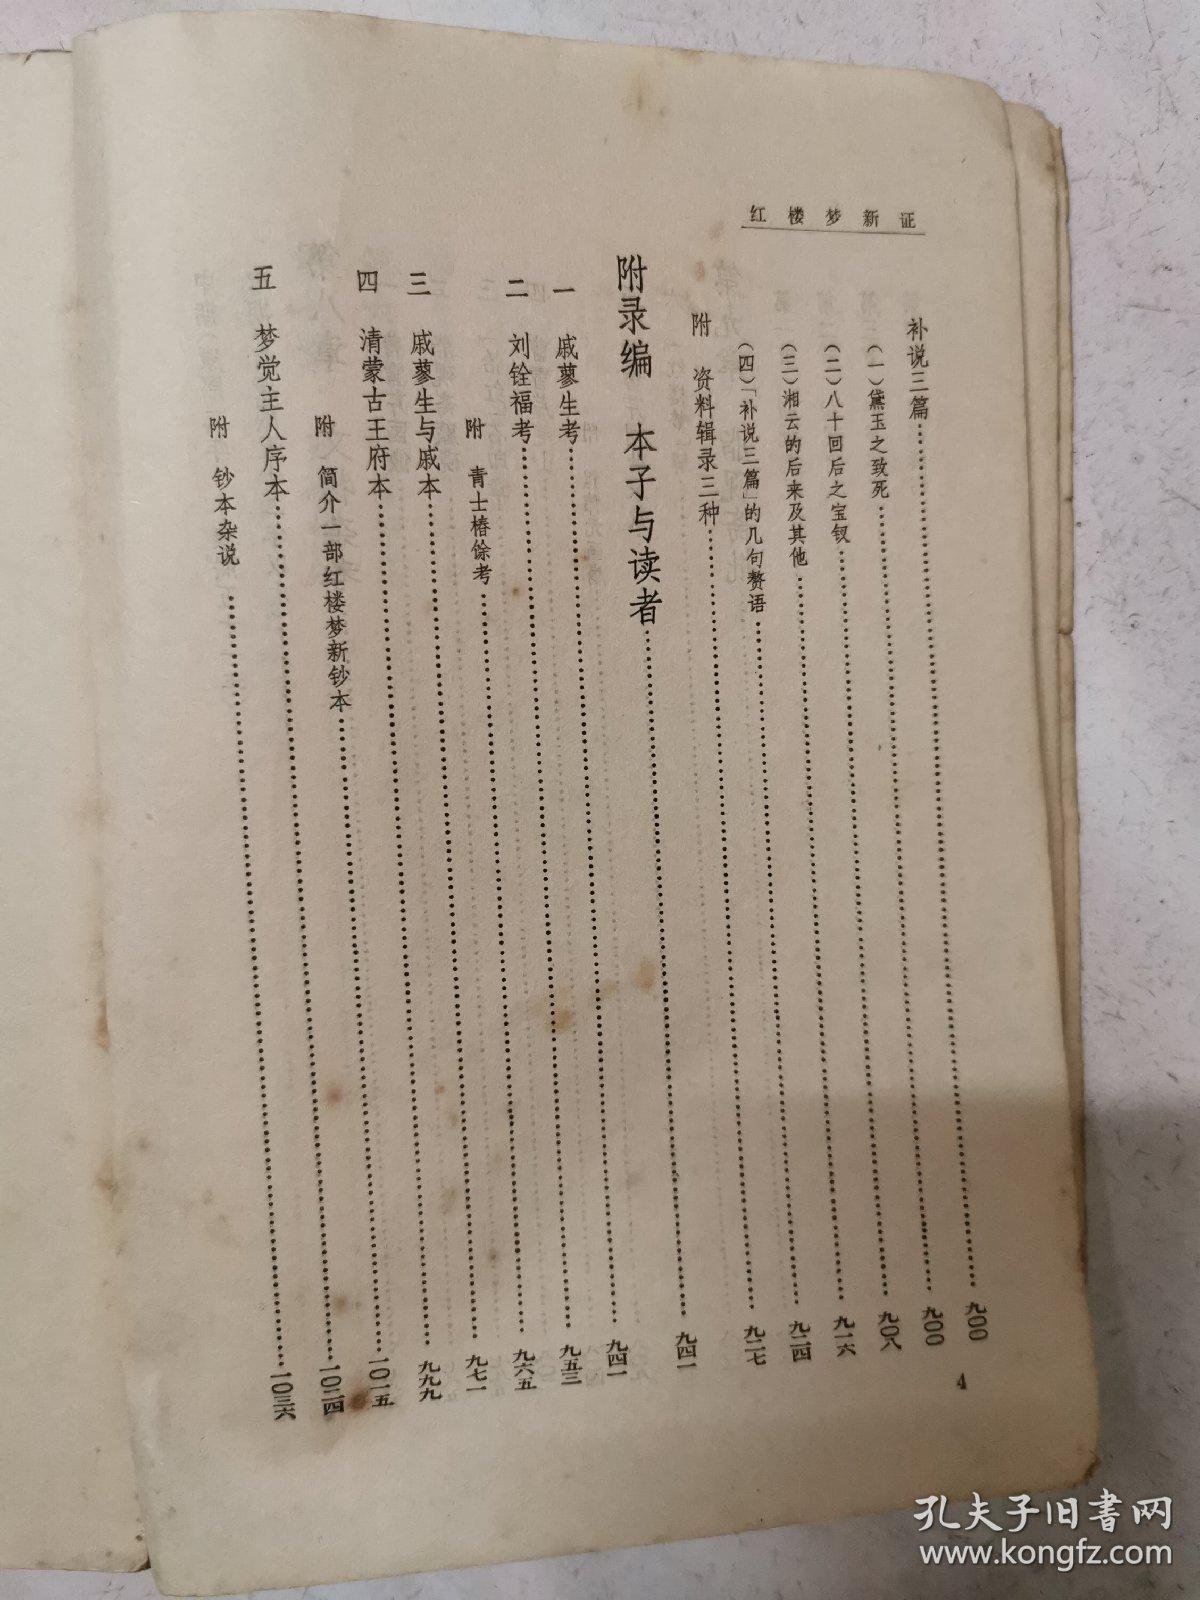 红楼梦新证
补说三篇……九〇〇
(一)黛玉之致死……九〇〇
(二)八十回后之宝钗……九〇八
(三)湘云的后来及其他……九一六
(四)「补说三篇」的几句赘语……九二四
附 资料辑录三种……九二七
附录编 本子与读者……九四一
一 戚蓼生考……九四一
二 刘铨福考……九五三
附 青士椿馀考……九六五
三 戚蓼生与戚本……九七一
四 清蒙古王府本……九九九
附 简介一部红楼梦新钞本……一〇一五
五 梦觉主人序本……一〇二四
附 钞本杂说……一〇三六
4
孔夫子旧書网
www.kongfz.com